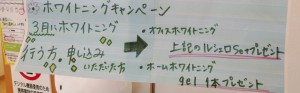 ホワイトニングキャンペーン
3月にホワイトニング
行う方、申し込み
いただいた方
・オフィスホワイトニング
上記のルシェロSeプレゼント
・ホームホワイトニング
gel 1本プレゼント